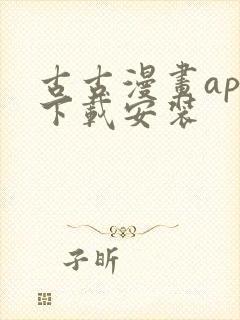 古古漫畫ap
下載安装
子昕